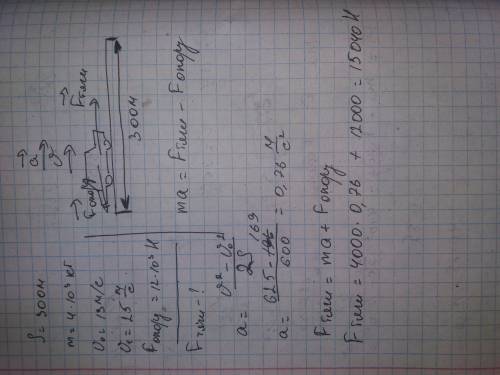 S = 300м
m = 4·10³ кг
υ₀ = 13 м/с
υ₁ = 25 м/с
Fсопр = 12·10³ Н
Fтяги - ?
a→
υ→
Fсопр→
Fтяги→
300м
ma = Fтяги - Fсопр
a = (υ² - υ₀²) / 2S
a = (625 - 169) / 600 = 0,76 м/с²
Fтяги = ma + Fсопр
Fтяги = 4000·0,76 + 12000 = 15040 Н